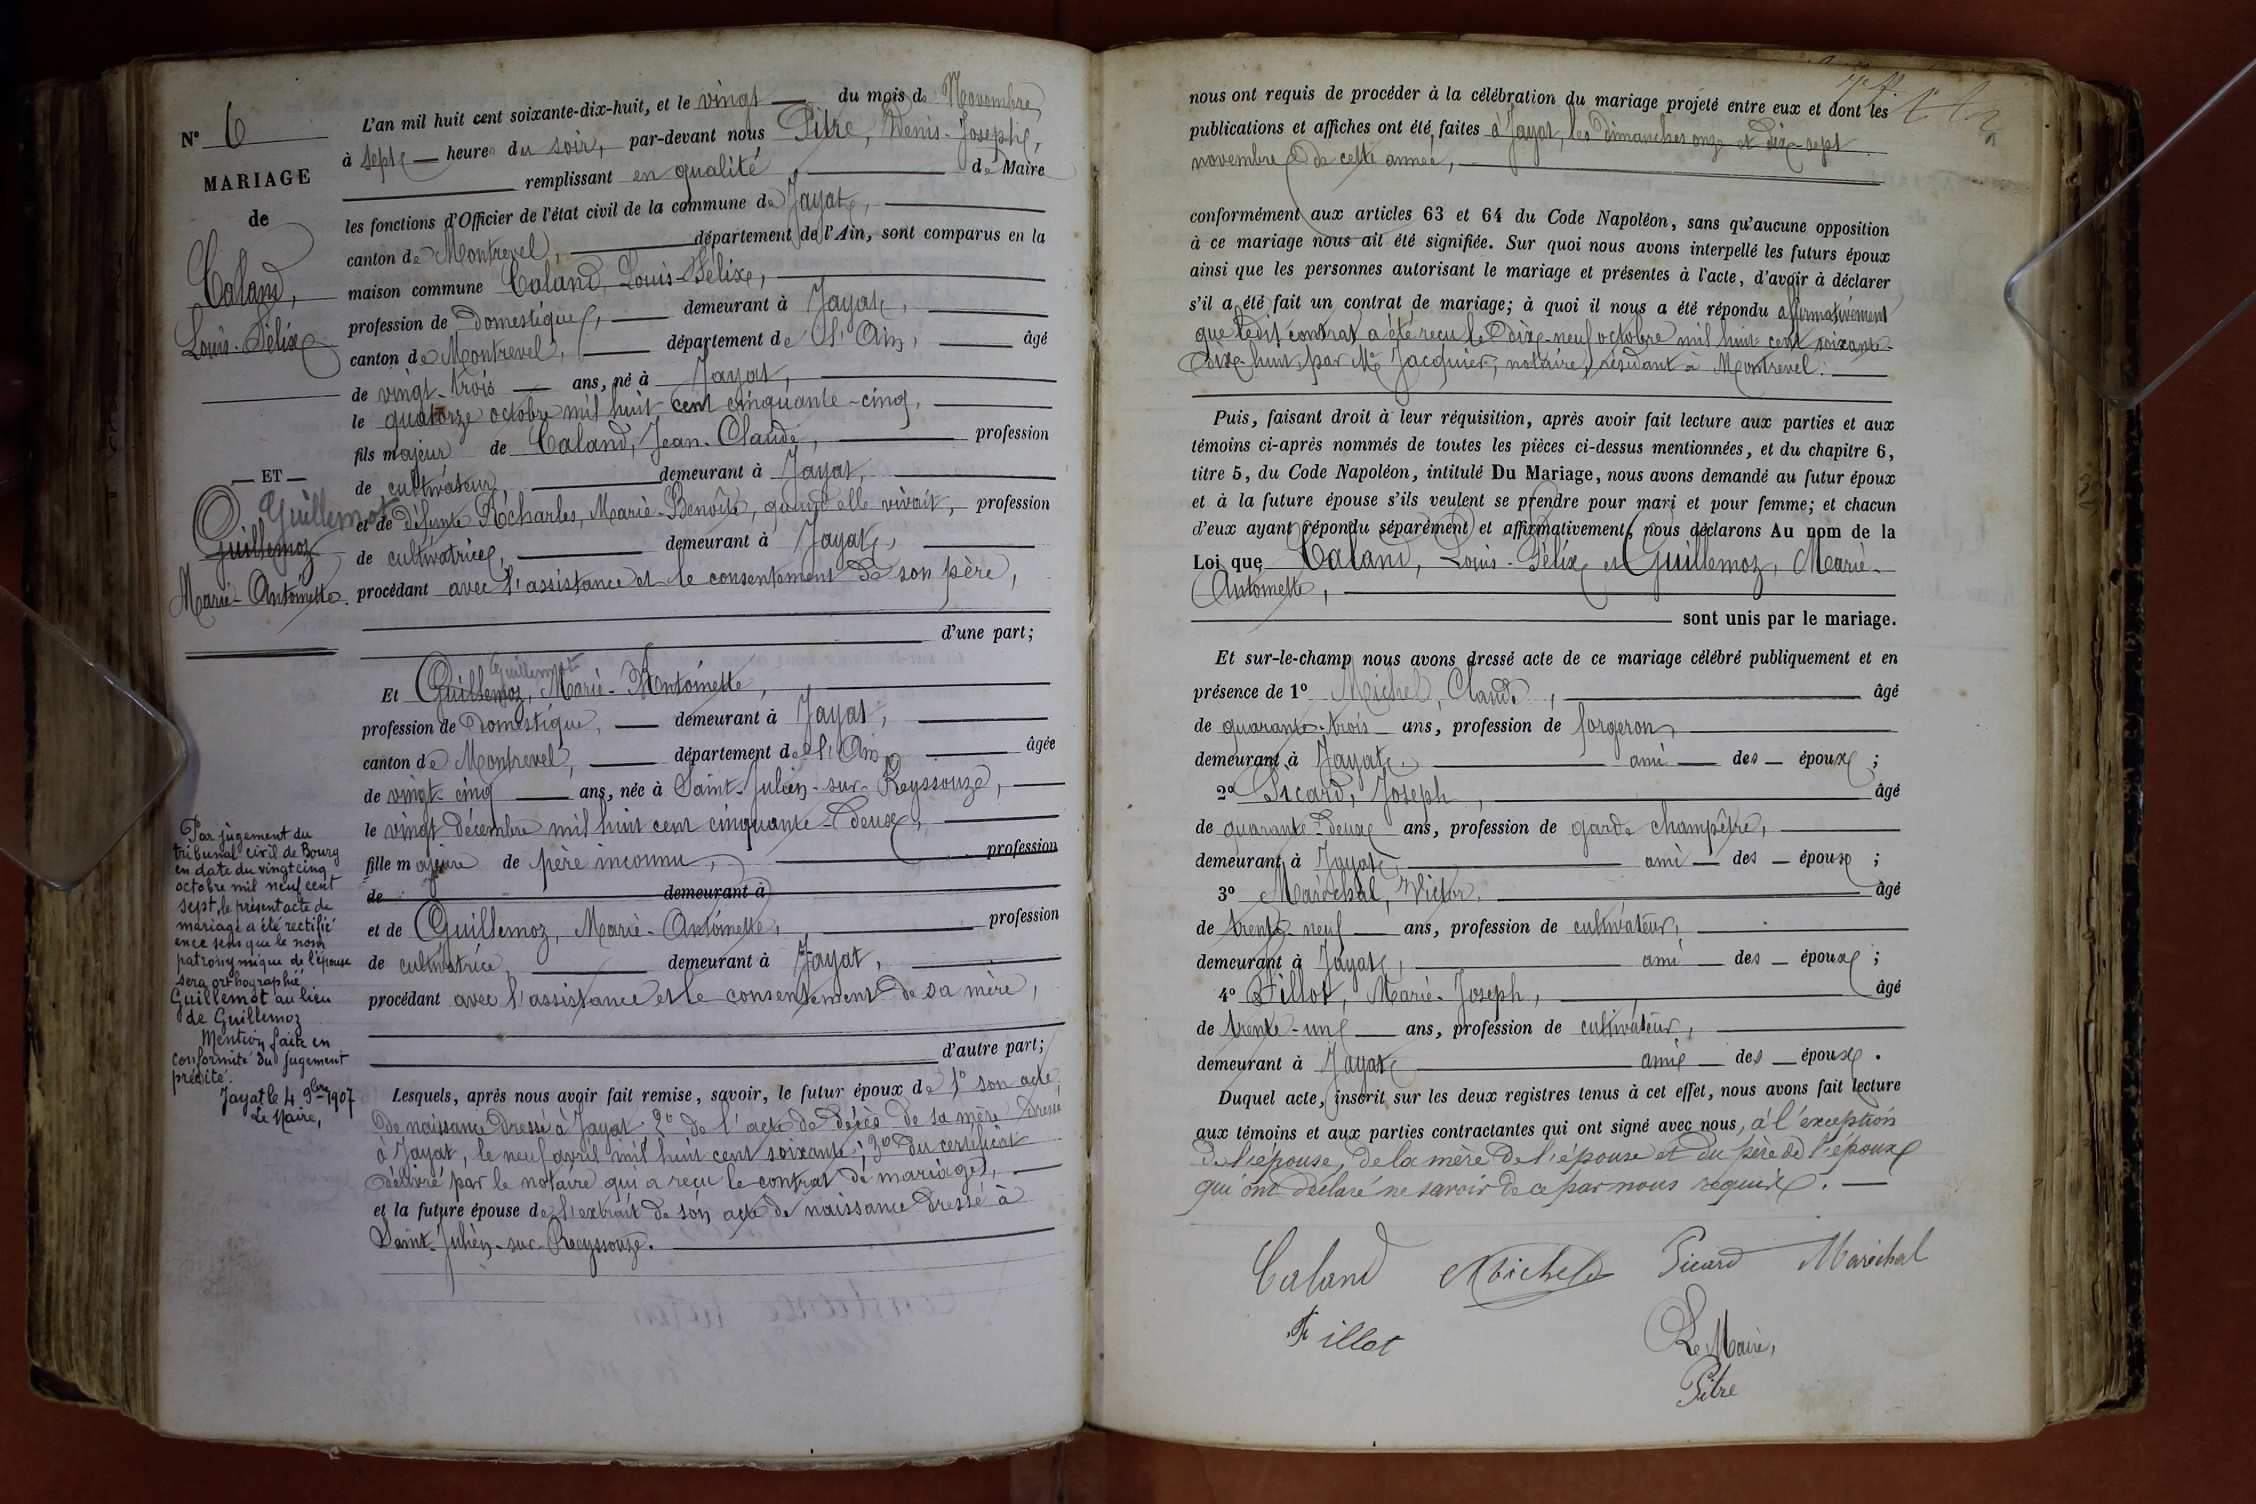 N° 6
MARIAGE
de
Caland,
Louis-Félix
— ET —
Guillemot
Guillemoz
Marie-Antoinette.
Par jugement du
tribunal civil de Bourg
en date du vingt cinq
octobre mil neuf cent
sept, le présent acte de
mariage a été rectifié
en ce sens que le nom
patronymique de l'épouse
sera orthographié
Guillemot au lieu
de Guillemoz
Mention faite en
conformité du jugement
précité.
Jayat le 4 9bre 1907
Le Maire,
L'an mil huit cent soixante-dix-huit, et le vingt du mois de Novembre,
à sept heures du soir, par-devant nous Pitre, Denis-Joseph,
remplissant en qualité de Maire
les fonctions d'Officier de l'état civil de la commune de Jayat,
canton de Montrevel, département de l'Ain, sont comparus en la
maison commune Caland, Louis-Félix,
profession de domestique, demeurant à Jayat,
canton de Montrevel, département de l'Ain, âgé
de vingt-trois ans, né à Jayat,
le quatorze octobre mil huit cent cinquante-cinq,
fils majeur de Caland, Jean-Claude, profession
de cultivateur, demeurant à Jayat,
et de défunte Richarles, Marie-Benoîte, quand elle vivait, profession
de cultivatrice, demeurant à Jayat,
procédant avec l'assistance et le consentement de son père,
d'une part;
Guillemot
Et Guillemoz, Marie-Antoinette,
profession de domestique, demeurant à Jayat,
canton de Montrevel, département de l'Ain, âgée
de vingt-cinq ans, née à Saint-Julien-sur-Reyssouze,
le vingt décembre mil huit cent cinquante-deux,
fille majeure de père inconnu, profession
de demeurant à
et de Guillemoz, Marie-Antoinette, profession
de cultivatrice, demeurant à Jayat,
procédant avec l'assistance et le consentement de sa mère,
d'autre part;
Lesquels, après nous avoir fait remise, savoir, le futur époux de 1° son acte
de naissance dressé à Jayat; 2° de l'acte de décès de sa mère dressé
à Jayat, le neuf avril mil huit cent soixante; 3° du certificat
délivré par le notaire qui a reçu le contrat de mariage,
et la future épouse de l'extrait de son acte de naissance dressé à
Saint-Julien-sur-Reyssouze.
nous ont requis de procéder à la célébration du mariage projeté entre eux et dont les
publications et affiches ont été faites à Jayat, les dimanches onze et dix-sept
novembre de cette année,
conformément aux articles 63 et 64 du Code Napoléon, sans qu'aucune opposition
à ce mariage nous ait été signifiée. Sur quoi nous avons interpellé les futurs époux
ainsi que les personnes autorisant le mariage et présentes à l'acte, d'avoir à déclarer
s'il a été fait un contrat de mariage; à quoi il nous a été répondu affirmativement
que ledit contrat a été reçu le dix-neuf octobre mil huit cent soixante-
dix-huit, par Me Jacquier, notaire, résidant à Montrevel.
Puis, faisant droit à leur réquisition, après avoir fait lecture aux parties et aux
témoins ci-après nommés de toutes les pièces ci-dessus mentionnées, et du chapitre 6,
titre 5, du Code Napoléon, intitulé Du Mariage, nous avons demandé au futur époux
et à la future épouse s'ils veulent se prendre pour mari et pour femme; et chacun
d'eux ayant répondu séparément et affirmativement, nous déclarons Au nom de la
Loi que Caland, Louis-Félix et Guillemoz, Marie-
Antoinette,
sont unis par le mariage.
Et sur-le-champ nous avons dressé acte de ce mariage célébré publiquement et en
présence de 1° Michel, Claude, âgé
de quarante-trois ans, profession de forgeron,
demeurant à Jayat, ami des époux;
2° Picard, Joseph, âgé
de quarante-deux ans, profession de garde champêtre,
demeurant à Jayat ami des époux;
3° Maréchal, Victor, âgé
de trente-neuf ans, profession de cultivateur,
demeurant à Jayat, ami des époux;
4° Fillot, Marie-Joseph, âgé
de trente-un ans, profession de cultivateur,
demeurant à Jayat ami des époux.
Duquel acte, inscrit sur les deux registres tenus à cet effet, nous avons fait lecture
aux témoins et aux parties contractantes qui ont signé avec nous, à l'exception
de l'épouse, de la mère de l'épouse et du père de l'époux
qui ont déclaré ne savoir de ce par nous requis.
Caland Michel Picard Maréchal
Fillot
Le Maire,
Pitre